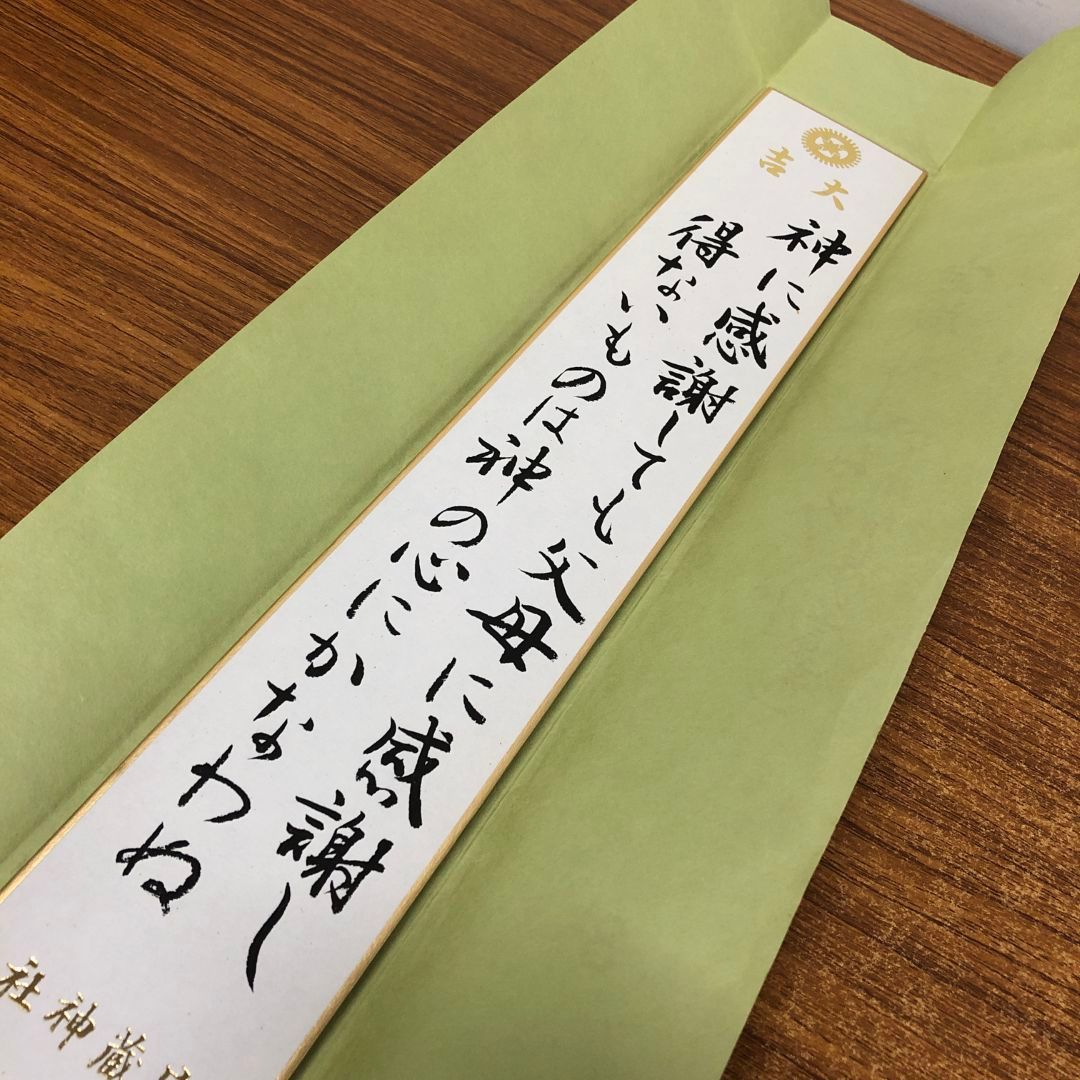 大吉
神に感謝しても父母に感謝し
得ないものは神の心にかなわぬ
蔵神社